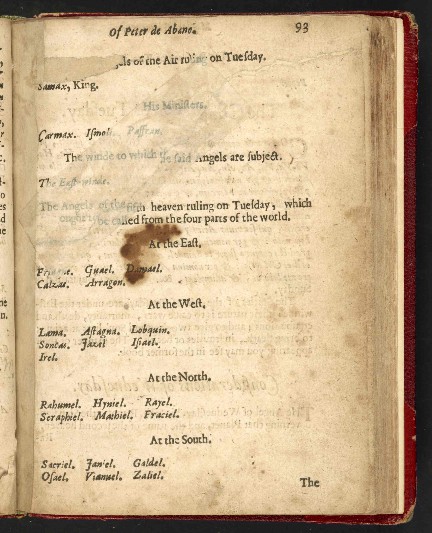 Of Peter de Abano. 93
of the Air ruling on Tuesday.
Samax, King.
His Ministers.
Carmax. Ismoli. Paffran.
The winde to which the said Angels are subject.
The East-winde.
The Angels of the fifth heaven ruling on Tuesday, which
ought to be called from the four parts of the world.
At the East.
Guael. Damael.
Calzas. Arragon.
At the West.
Lama. Astagna. Lobquin.
Soncas. Jazel Isiael.
Irel.
At the North.
Rahumel. Hyniel. Rayel.
Seraphiel. Mathiel. Fraciel.
At the South.
Sacriel. Janiel. Galdel.
Osael. Vianuel. Zaliel.
The